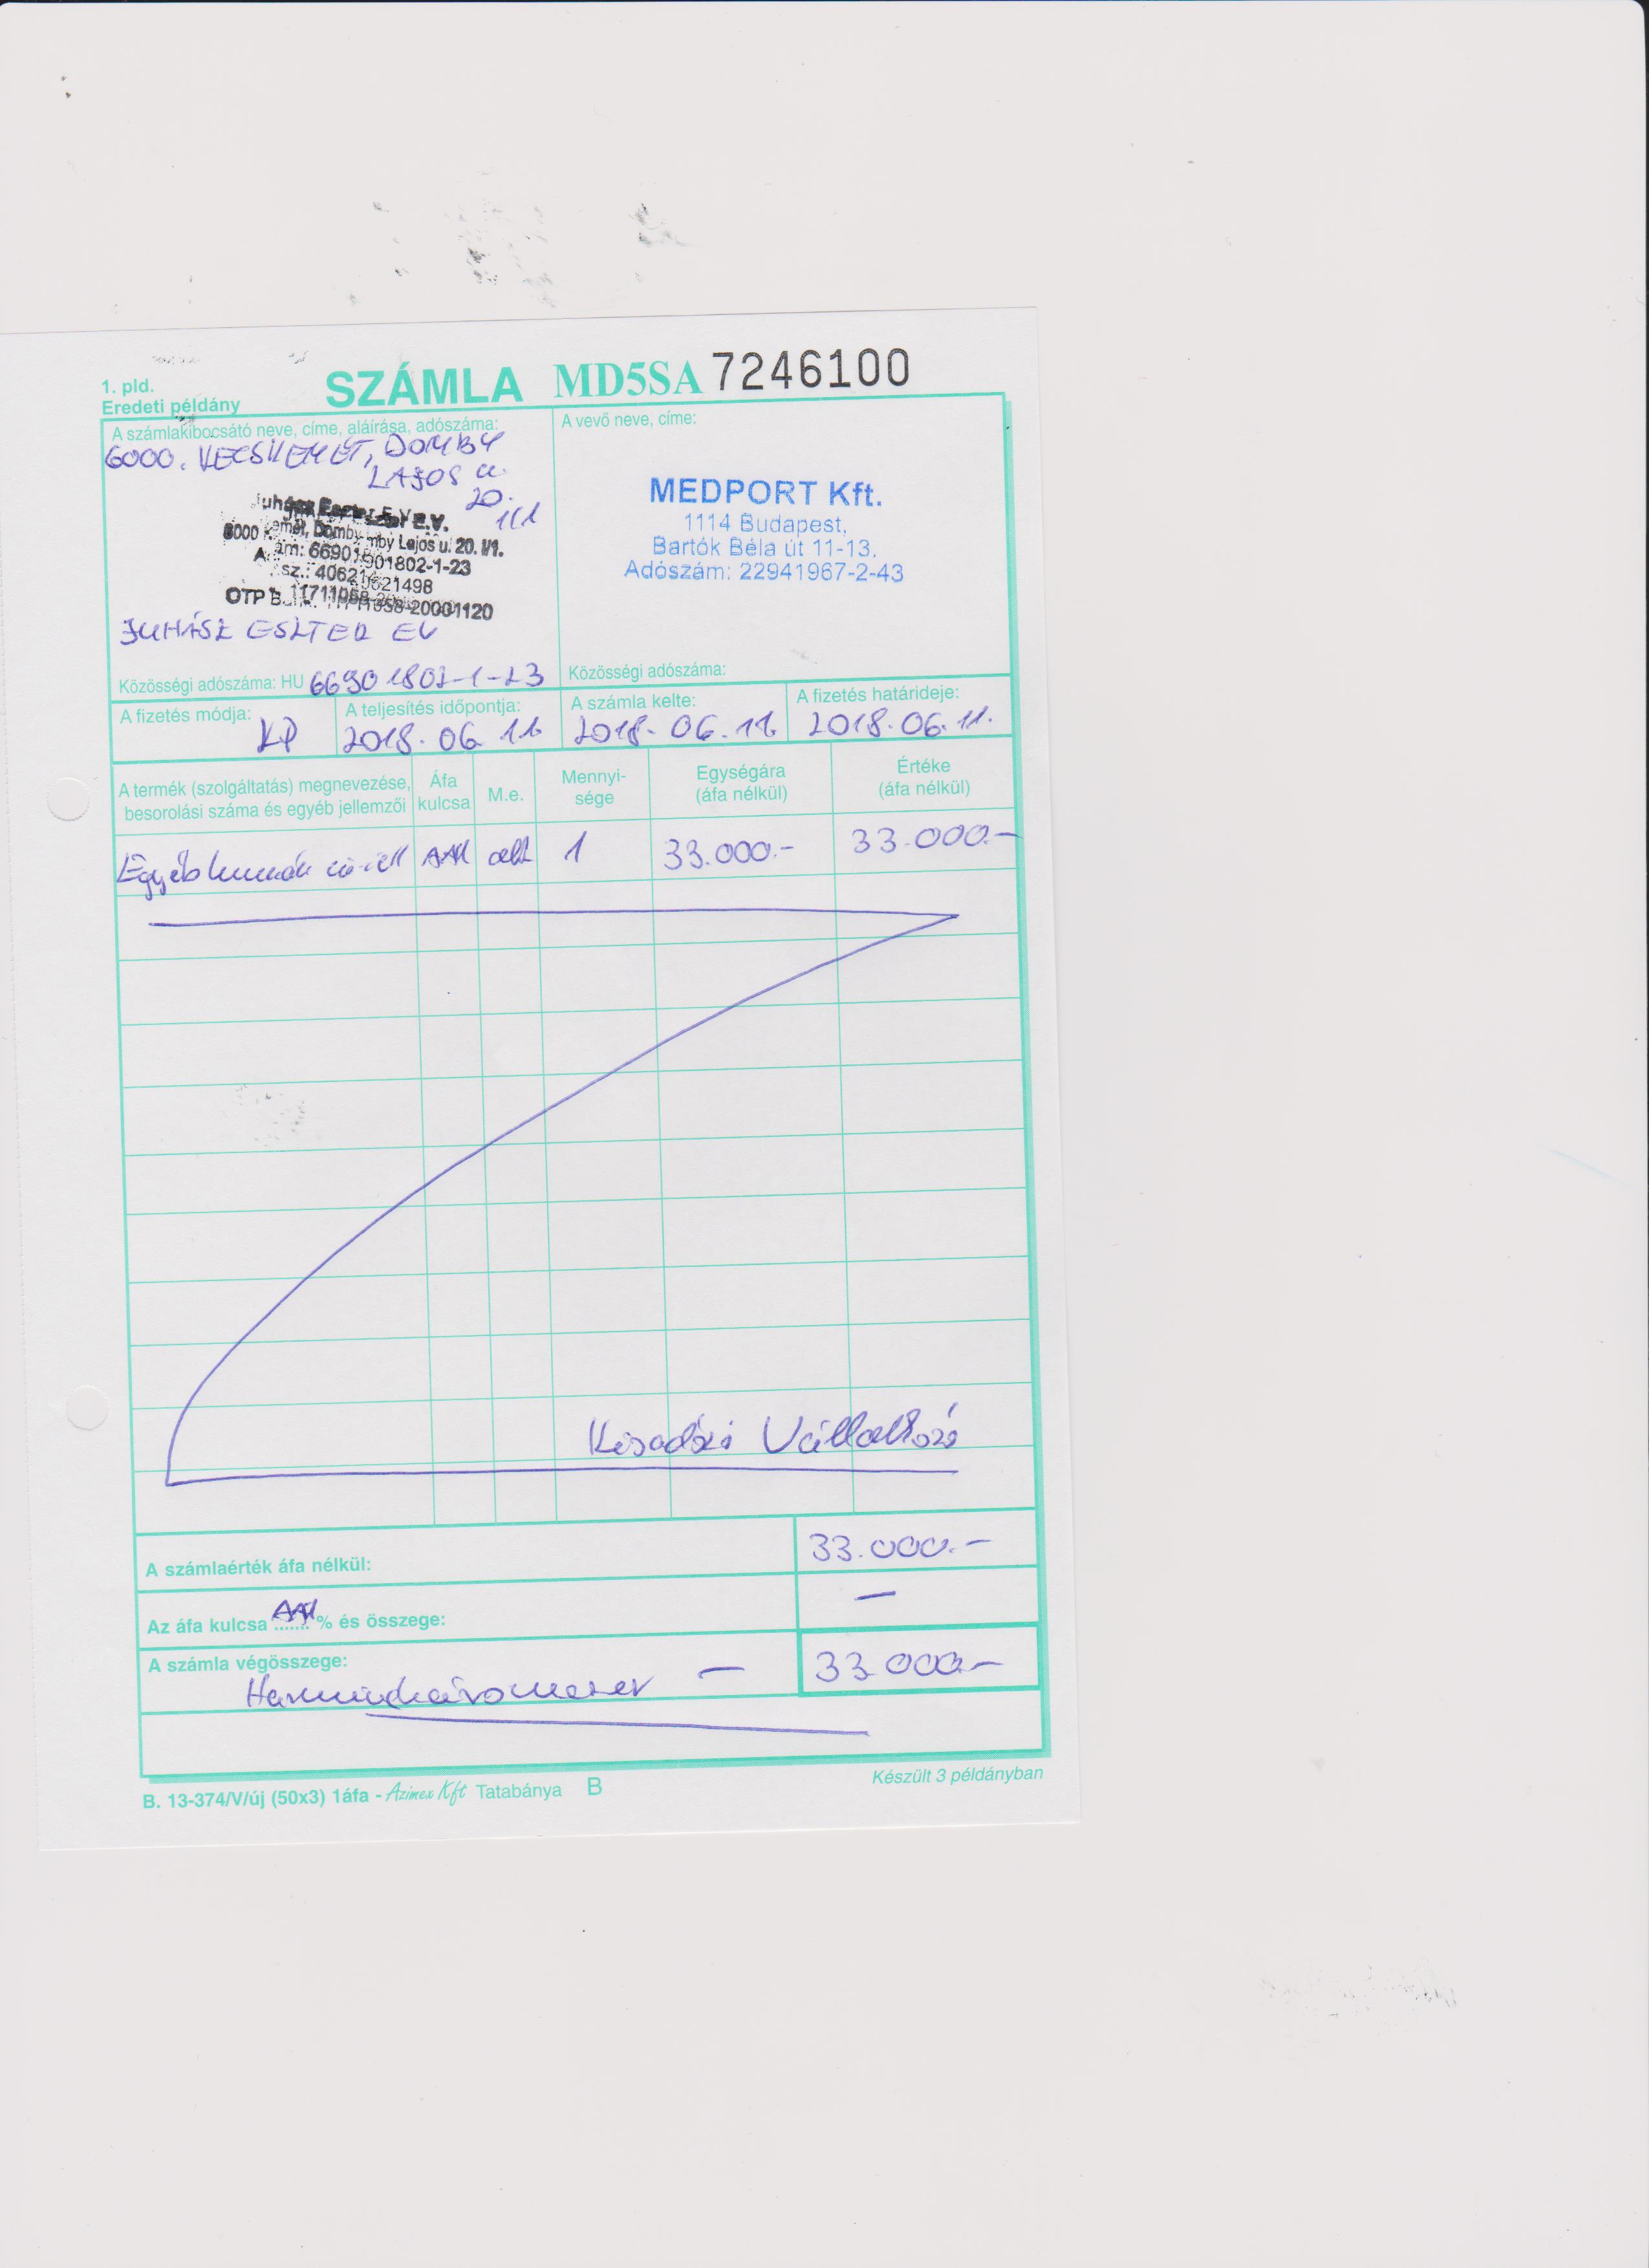 1. pld.
Eredeti példány
SZÁMLA MD5SA 7246100
A számlakibocsátó neve, címe, aláírása, adószáma:
6000. KECSKEMÉT, DOMBY
LAJOS u.
20.
1/1
E.V.
Lajos u. 20. I/1.
OTP
20001120
JUHÁSZ ESZTER EV
Közösségi adószáma: HU 66901802-1-23
A vevő neve, címe:
MEDPORT Kft.
1114 Budapest,
Bartók Béla út 11-13.
Adószám: 22941967-2-43
Közösségi adószáma:
A fizetés módja: KP
A teljesítés időpontja: 2018.06.11.
A számla kelte: 2018.06.11.
A fizetés határideje: 2018.06.11.
A termék (szolgáltatás) megnevezése, besorolási száma és egyéb jellemzői
Áfa kulcsa
M.e.
Mennyi-sége
Egységára (áfa nélkül)
Értéke (áfa nélkül)
Egyéb AAM 1 33.000.- 33.000.-
Kisadózó Vállalkozó
A számlaérték áfa nélkül: 33.000.-
Az áfa kulcsa AAM % és összege: —
A számla végösszege: 33.000.-
Harmincháromezer —
B. 13-374/V/új (50x3) 1áfa - Azimex Kft Tatabánya B
Készült 3 példányban